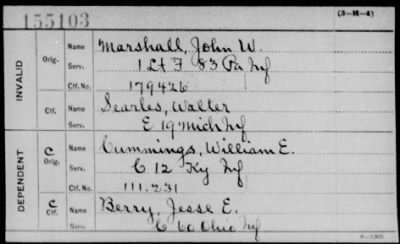 155103
(3-H-4)
INVALID
Orig. Name Marshall, John W.
Serv. 1 Lt F 83 Pa Inf
Ctf. No. 179426
Ctf. Name Searles, Walter
Serv. E 19 Mich Inf
DEPENDENT
C Orig. Name Cummings, William E.
Serv. C 12 Ky Inf
Ctf. No. 111.231
C Ctf. Name Berry, Jesse E.
Serv. C 60 Ohio Inf